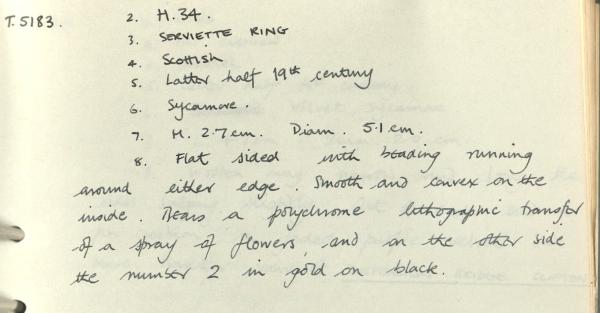 T.5183. 2. H.34.
3. SERVIETTE RING
4. Scottish
5. Latter half 19th century
6. Sycamore.
7. H. 2.7 cm. Diam. 5.1 cm.
8. Flat sided with beading running
around either edge. Smooth and convex on the
inside. Bears a polychrome lithographic transfer
of a spray of flowers, and on the other side
the number 2 in gold on black.